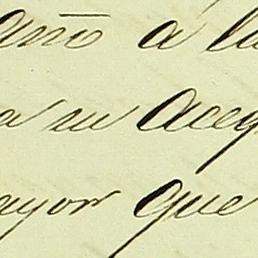 año á la
a su Aceq
ayor que